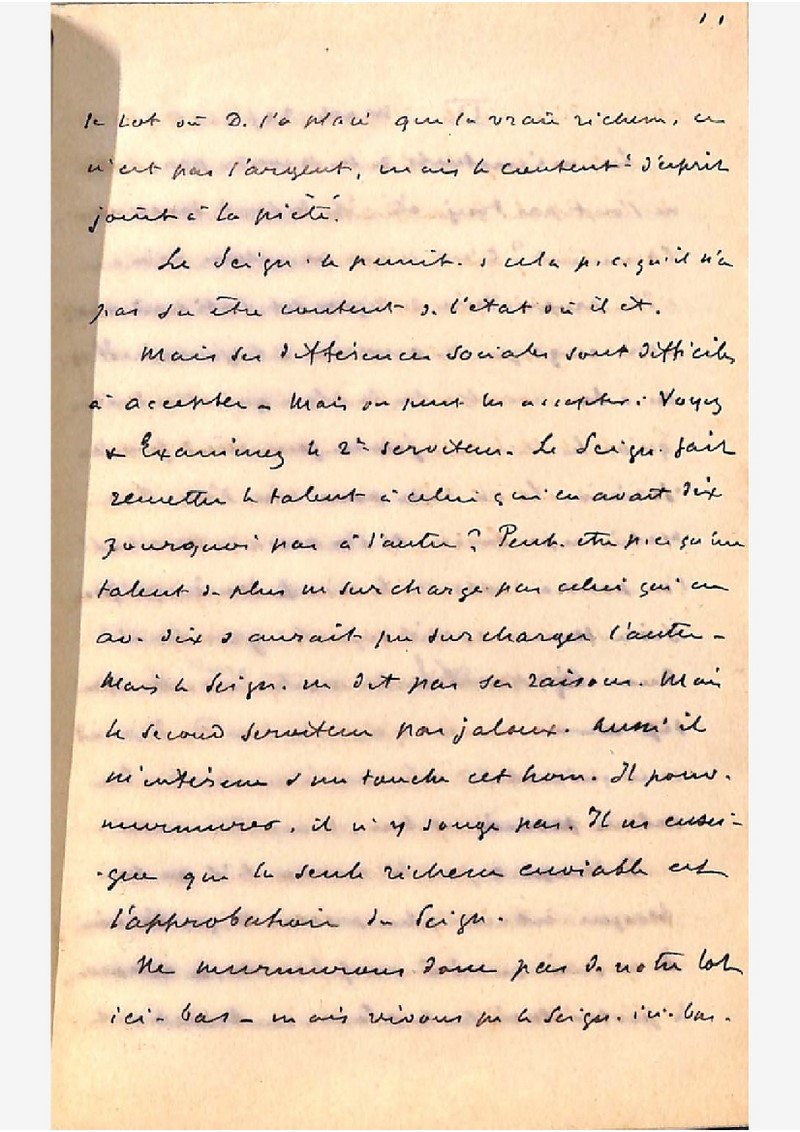 11
le lot où D. l'a placé que la vraie richesse, ce
n'est pas l'argent, mais le contentt d'esprit
joint à la piété.
Le Seign. le punit. & cela p.c.qu'il n'a
pas su être content de l'état où il est.
Mais ses différences sociales sont difficiles
à accepter - Mais on peut les accepter. Voyez
& Examinez le 2e serviteur. Le Seign. fait
remettre le talent à celui qui en avait dix
Pourquoi pas à l'autre? Peut-être p.ce qu'un
talent de plus ne surcharge pas celui qui en
av. dix & aurait pu surcharger l'autre -
Mais le Seign. ne dit pas ses raisons. Mais
le second serviteur pas jaloux. Aussi il
m'intéresse & me touche cet hom. Il pouv.
murmurer, il n'y songe pas. Il ns ensei-
-gne que la seule richesse enviable est
l'approbation du Seign.
Ne murmurons donc pas de notre lot
ici-bas - mais vivons pr le Seign. ici-bas.